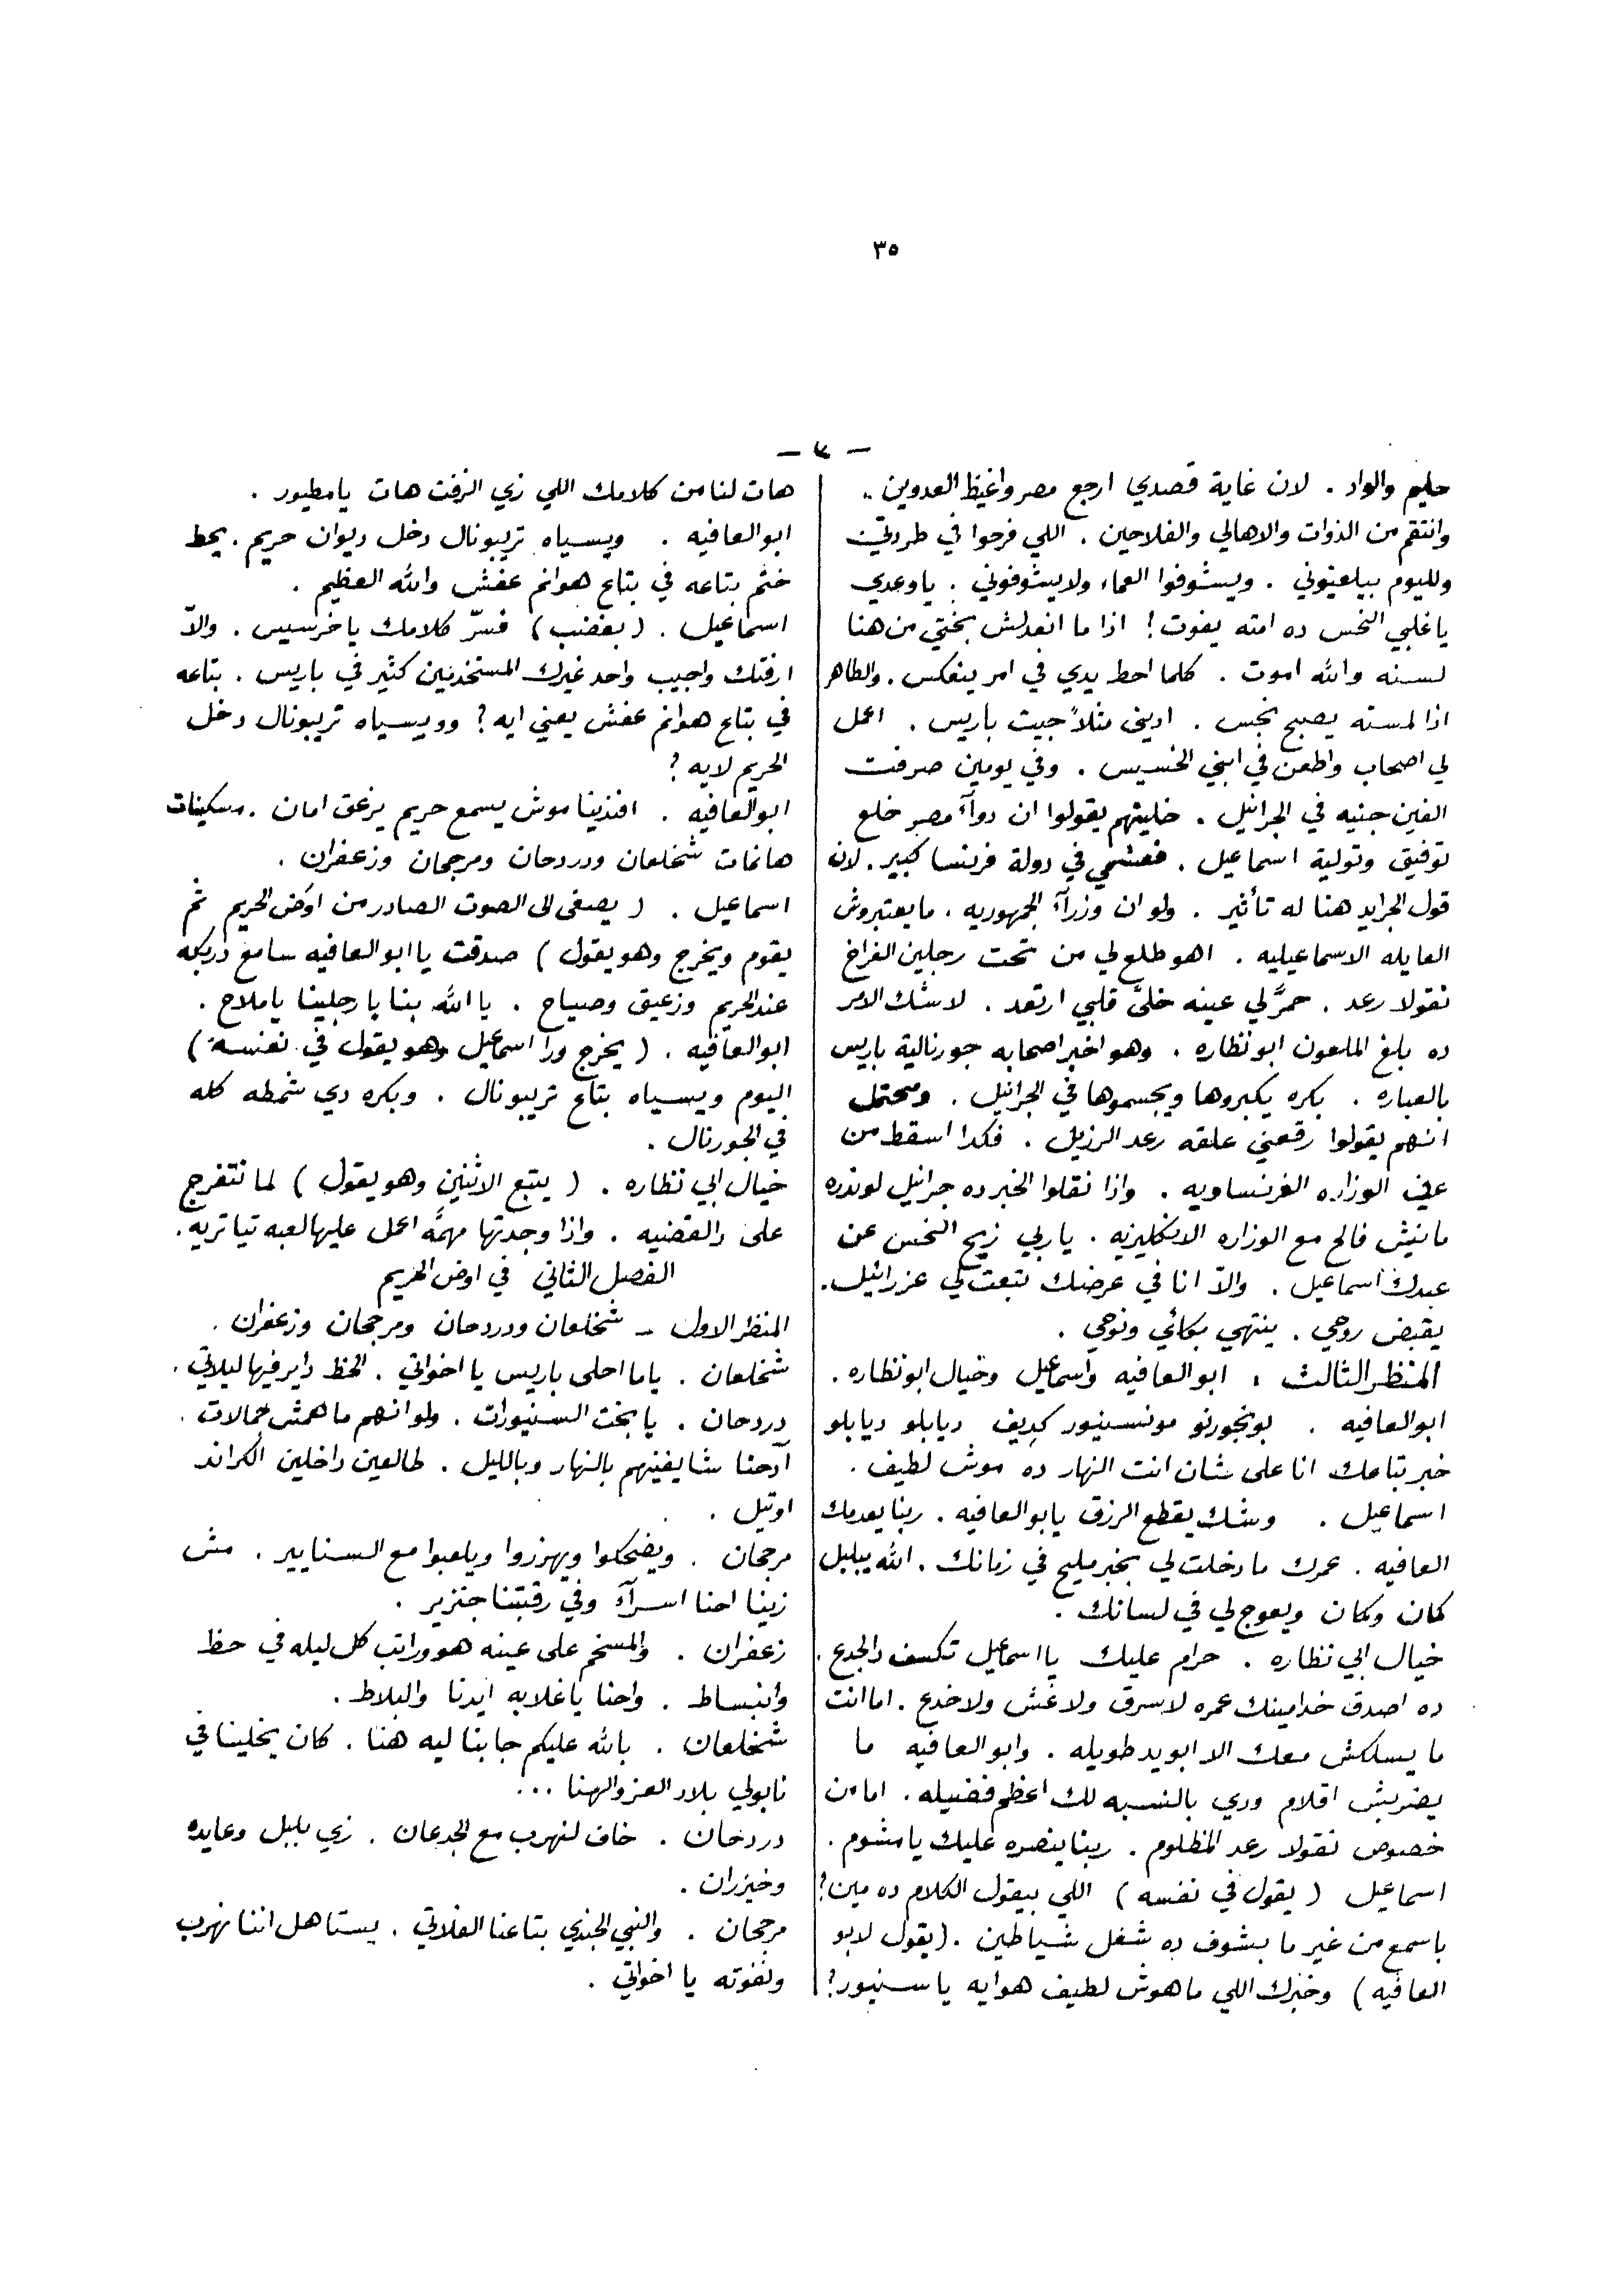 ٣٥
حليم والواد . لان غاية قصدي ارجع مصر واغيظ العدوين .
وانتقم من الذوات والاهالي والفلاحين . اللي فرحوا في طردتي
ولليوم بيلعنوني . ويشوفوا العماء ولايشوفوني . ياوعدي
يا غلبي النحس ده امته يفوت ! اذا ما انعدلش بختي من هنا
لسنه والله اموت . كلما احط يدي في امر ينعكس . والطاهر
اذا لمسته يصبح نجس . اديني مثلاً جيت باريس . اعمل
لي اصحاب واطعن في ابني الخسيس . وفي يومين صرفت
الفين جنيه في الجرانيل . خليتهم يقولوا ان دوآء مصر خلع
توفيق وتولية اسماعيل . فعشمي في دولة فرنسا كبير . لان
قول الجرايد هنا له تأثير . ولو ان وزرآء الجمهوريه . مايعتبروش
العايله الاسماعيليه . اهو طلع لي من تحت رجلين الفراخ
نقولا رعد . حمرّ لي عينه خلّى قلبي ارتعد . لاشك الامر
ده بلغ الملعون ابو نظاره . وهو اخبر اصحابه جورنالية باريس
بالعباره . بكره يكبروها ويجسموها في الجرانيل . ومحتمل
انهم يقولوا رقعني علقه رعد الرزيل . فكدا اسقط من
عين الوزاره الفرنساويه . واذا نقلوا الخبر ده جرانيل لوندره
مانيش فالح مع الوزاره الانكليزيه . ياربي زيح النحس عن
عبدك اسماعيل . والاّ انا في عرضك تبعت لي عزرائيل .
يقبض روحي . ينتهي بكائي ونوحي .
المنظر الثالث . ابو العافيه واسماعيل وخيال ابو نظاره .
ابو العافيه . بونجورنو مونسينيور كديف ديابلو ديابلو
خبر بتاعك انا على شان انت النهار ده موش لطيف .
اسماعيل . وشك يقطع الرزق يابو العافيه . ربنا يعدمك
العافيه . عمرك مادخلت لي بخبر مليح في زمانك . الله يبلبل
كمان وكمان ويعوج لي في لسانك .
خيال ابي نظاره . حرام عليك يا اسماعيل تكسف دالجدع .
ده اصدق خدامينك عمره لاسرق ولاغش ولاخدع . اما انت
ما يسلكش معك الا ابو يد طويله . وابو العافيه ما
يضربش اقلام ودي بالنسبه لك اعظم فضيله . اما من
خصوص نقولا رعد المظلوم . ربنا ينصره عليك يا مشوم .
اسماعيل ( يقول في نفسه ) اللي بيقول الكلام ده مين ؟
باسمع من غير ما بشوف ده شغل شياطين . ( يقول لابو
العافيه ) وخبرك اللي ماهوش لطيف هو ايه ياسنيور ؟
هات لنا من كلامك اللي زي الزفت هات يا مطيور .
ابو العافيه . ويسياه تريبونال دخل ديوان حريم . يحط
ختم بتاعه في بتاع هوانم عفش والله العظيم .
اسماعيل . ( بغضب ) فسّر كلامك ياخرسيس . والاّ
ارفتك واجيب واحد غيرك المستخدمين كثير في باريس . بتاعه
في بتاع هوانم عفش يعني ايه ؟ وويسياه تريبونال دخل
الحريم لايه ؟
ابو العافيه . افندينا موش يسمع حريم يزعق امان . مسكينات
هانمات شخلعان ودردحان ومرجحان وزعفران .
اسماعيل . ( يصغى الى الصوت الصادر من اوض الحريم ثم
يقوم ويخرج وهو يقول ) صدقت يا ابو العافيه سامع دربكه
عند الحريم وزعيق وصياح . يا الله بنا يا رجلينا ياملاح .
ابو العافيه . ( يخرج ورا اسماعيل وهو يقول في نفسه )
اليوم ويسياه بتاع تريبونال . وبكره دي شمطه كله
في الجورنال .
خيال ابي نظاره . ( يتبع الاثنين وهو يقول ) لما نتفرج
على دالقضيه . واذا وجدتها مهمّه اعمل عليها لعبه تياتريه .
الفصل الثاني في اوض الحريم
المنظر الاول _ شخلعان ودردحان ومرجحان وزعفران .
شخلعان . ياما احلى باريس يا اخواتي . الحظ داير فيها ليلاتي .
دردحان . يا بخت السنيورات . ولو انهم ماهمش جمالات .
آدحنا شايفينهم بالنهار وبالليل . طالعين داخلين الكراند
اوتيل .
مرجحان . ويضحكوا ويهزروا ويلعبوا مع السنايير . مش
زينا احنا اسرآء وفي رقبتنا جنزير .
زعفران . والمسخم على عينه هو وراتب كل ليله في حظ
وانبساط . واحنا ياغلابه ايدنا والبلاط .
شخلعان . بالله عليكم جابنا ليه هنا . كان يخلينا في
نابولي بلاد العز والهنا ...
دردحان . خاف لنهرب مع الجدعان . زي بلبل وعايده
وخيزران .
مرجحان . والنبي الجندي بتاعنا الفلاتي . يستاهل اننا نهرب
ونفوته يا اخواتي .